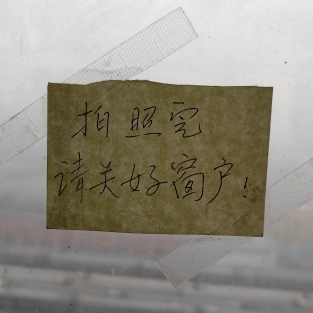 拍照完
请关好窗户!